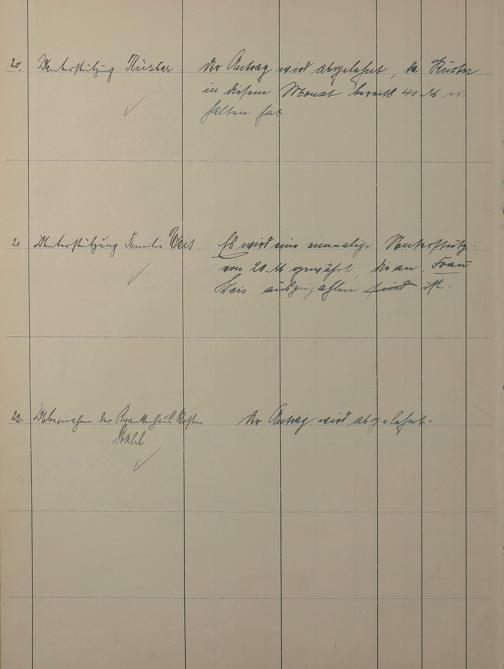 20. Unterstützung Küster
Der Antrag wird abgelehnt, da Küster
in diesem Monat bereits 40 M er-
halten hat.
21. Unterstützung Familie Weis
Es wird eine einmalige Unterstütz.
von 20 M gewährt, die an Frau
Weis auszuzahlen sind ist.
22. Übernahme der Krankenhaus Kosten
Der Antrag wird abgelehnt.